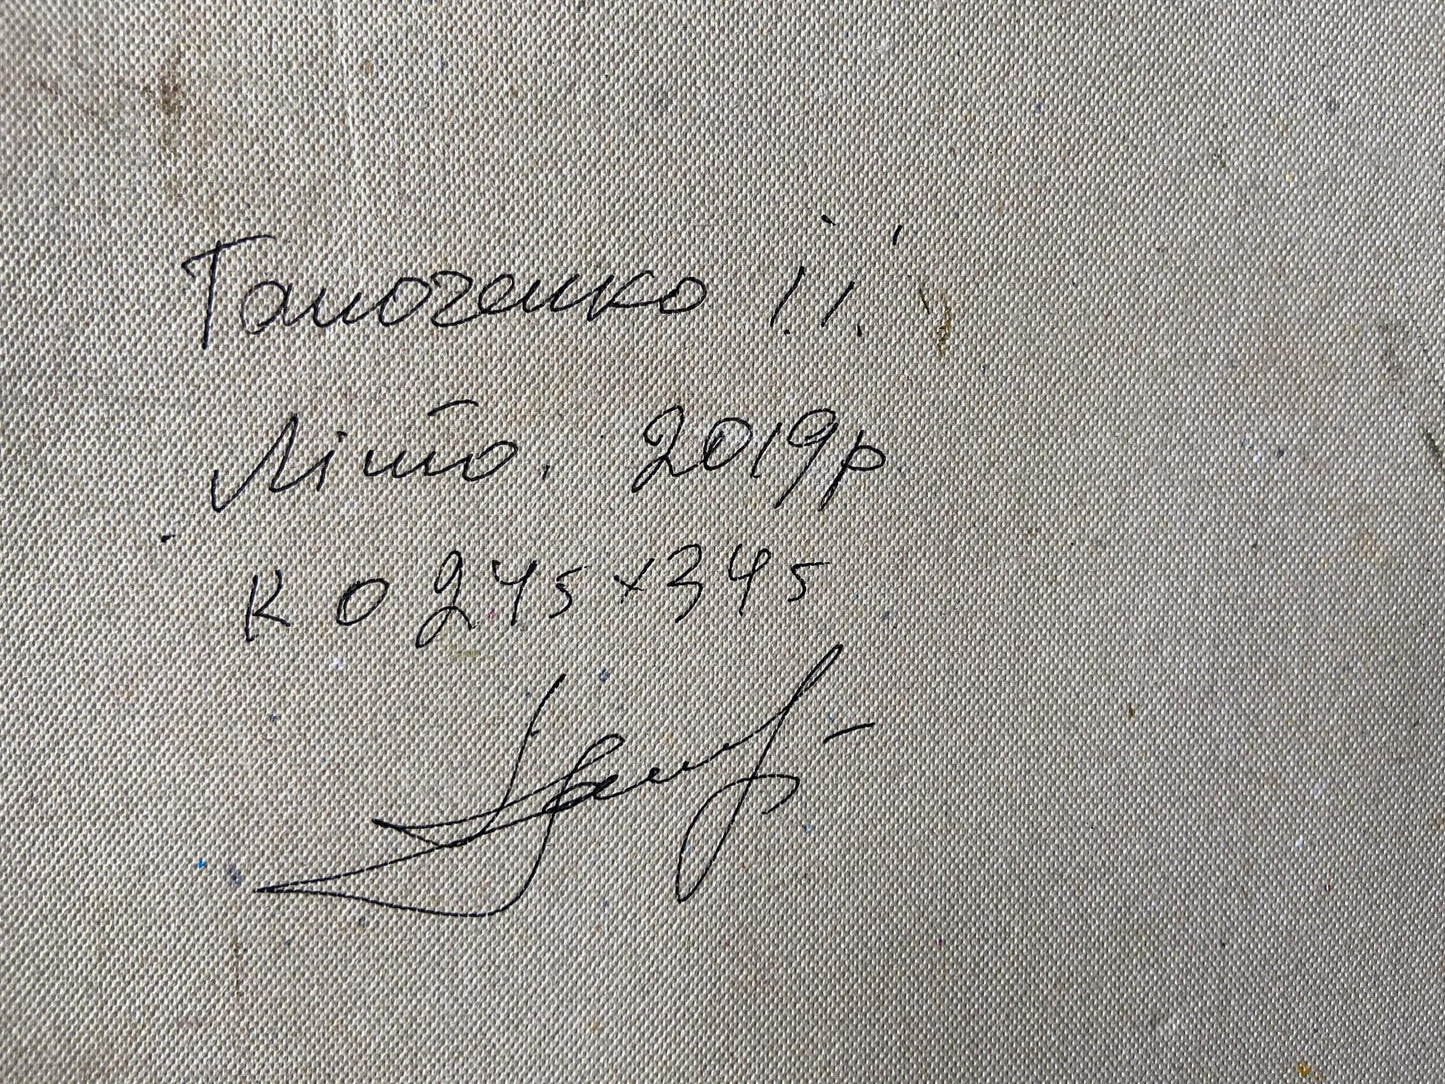 Гапоченко І.І.
Літо. 2019р
К О 245х345